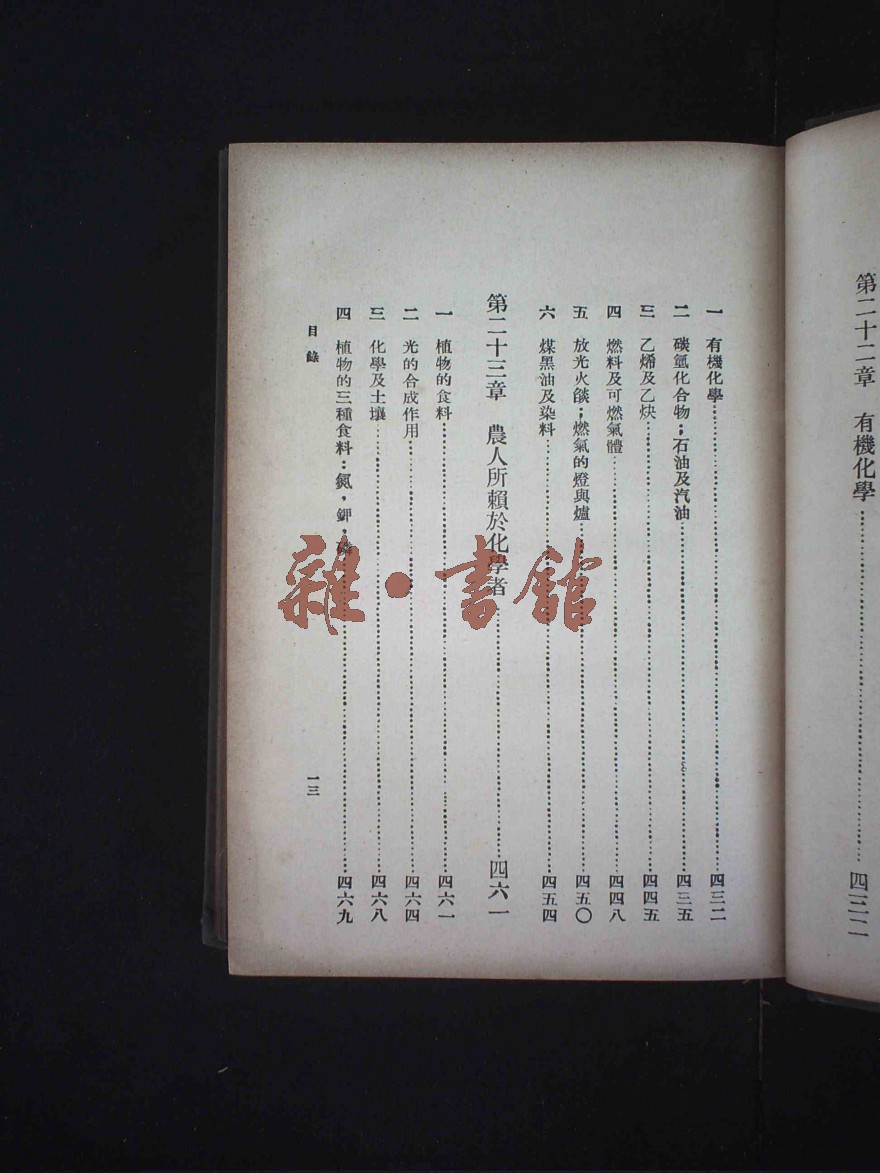 第二十二章 有機化學……四三二
一 有機化學……四三二
二 碳氫化合物；石油及汽油……四三五
三 乙烯及乙炔……四四五
四 燃料及可燃氣體……四四八
五 放光火燄；燃氣的燈與爐……四五〇
六 煤黑油及染料……四五四
第二十三章 農人所賴於化學者……四六一
一 植物的食料……四六一
二 光的合成作用……四六四
三 化學及土壤……四六八
四 植物的三種食料：氮，鉀，磷……四六九
目錄 一三
雜·書館